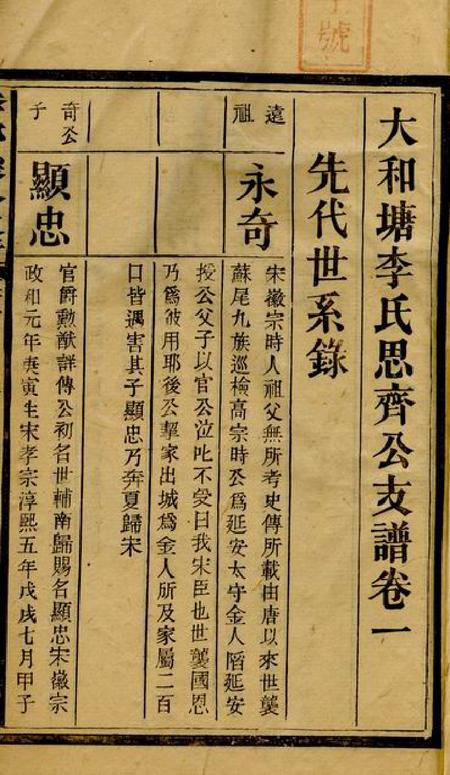 號
大和塘李氏思齊公支譜卷一
先代世系錄
遠祖
永奇
宋徽宗時人祖父無所考史傳所載由唐以來世襲
蘇尾九族巡檢高宗時公爲延安太守金人陷延安
授公父子以官公泣叱不受曰我宋臣也世襲國恩
乃爲彼用耶後公挈家出城爲金人所及家屬二百
口皆遇害其子顯忠乃奔夏歸宋
奇公子
顯忠
官爵勲猷詳傳公初名世輔南歸賜名顯忠宋徽宗
政和元年庚寅生宋孝宗淳熙五年戊戌七月甲子